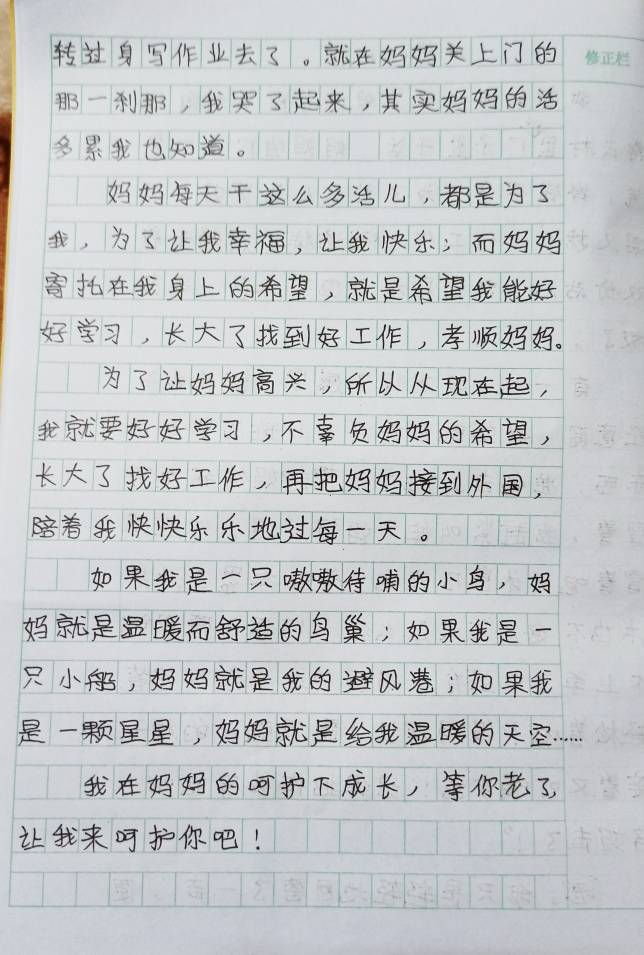 转过身写作业去了。就在妈妈关上门的
修正栏
那一刹那，我哭了起来，其实妈妈的活
多累我也知道。
妈妈每天干这么多活儿，都是为了
我，为了让我幸福，让我快乐；而妈妈
寄托在我身上的希望，就是希望我能好
好学习，长大了找到好工作，孝顺妈妈。
为了让妈妈高兴，所以从现在起，
我就要好好学习，不辜负妈妈的希望，
长大了找好工作，再把妈妈接到外国，
陪着我快快乐乐地过每一天。
如果我是一只嗷嗷待哺的小鸟，妈
妈就是温暖而舒适的鸟巢；如果我是一
只小船，妈妈就是我的避风港；如果我
是一颗星星，妈妈就是给我温暖的天空……
我在妈妈的呵护下成长，等你老了，
让我来呵护你吧！